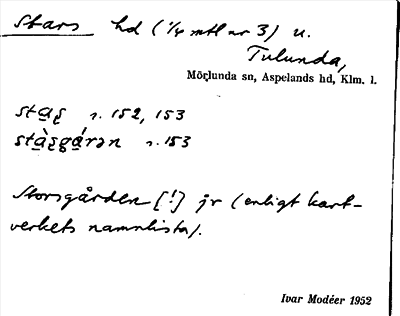 Stars hd (1/4 mtl nr 3) u.
Tulunda,
Mörlunda sn, Aspelands hd, Klm. l.
sta̱ʂ s. 152, 153
stà̱ʂgá̱rən s. 153
Storsgården [!] jr (enligt kart-
verkets namnlista).
Ivar Modéer 1952